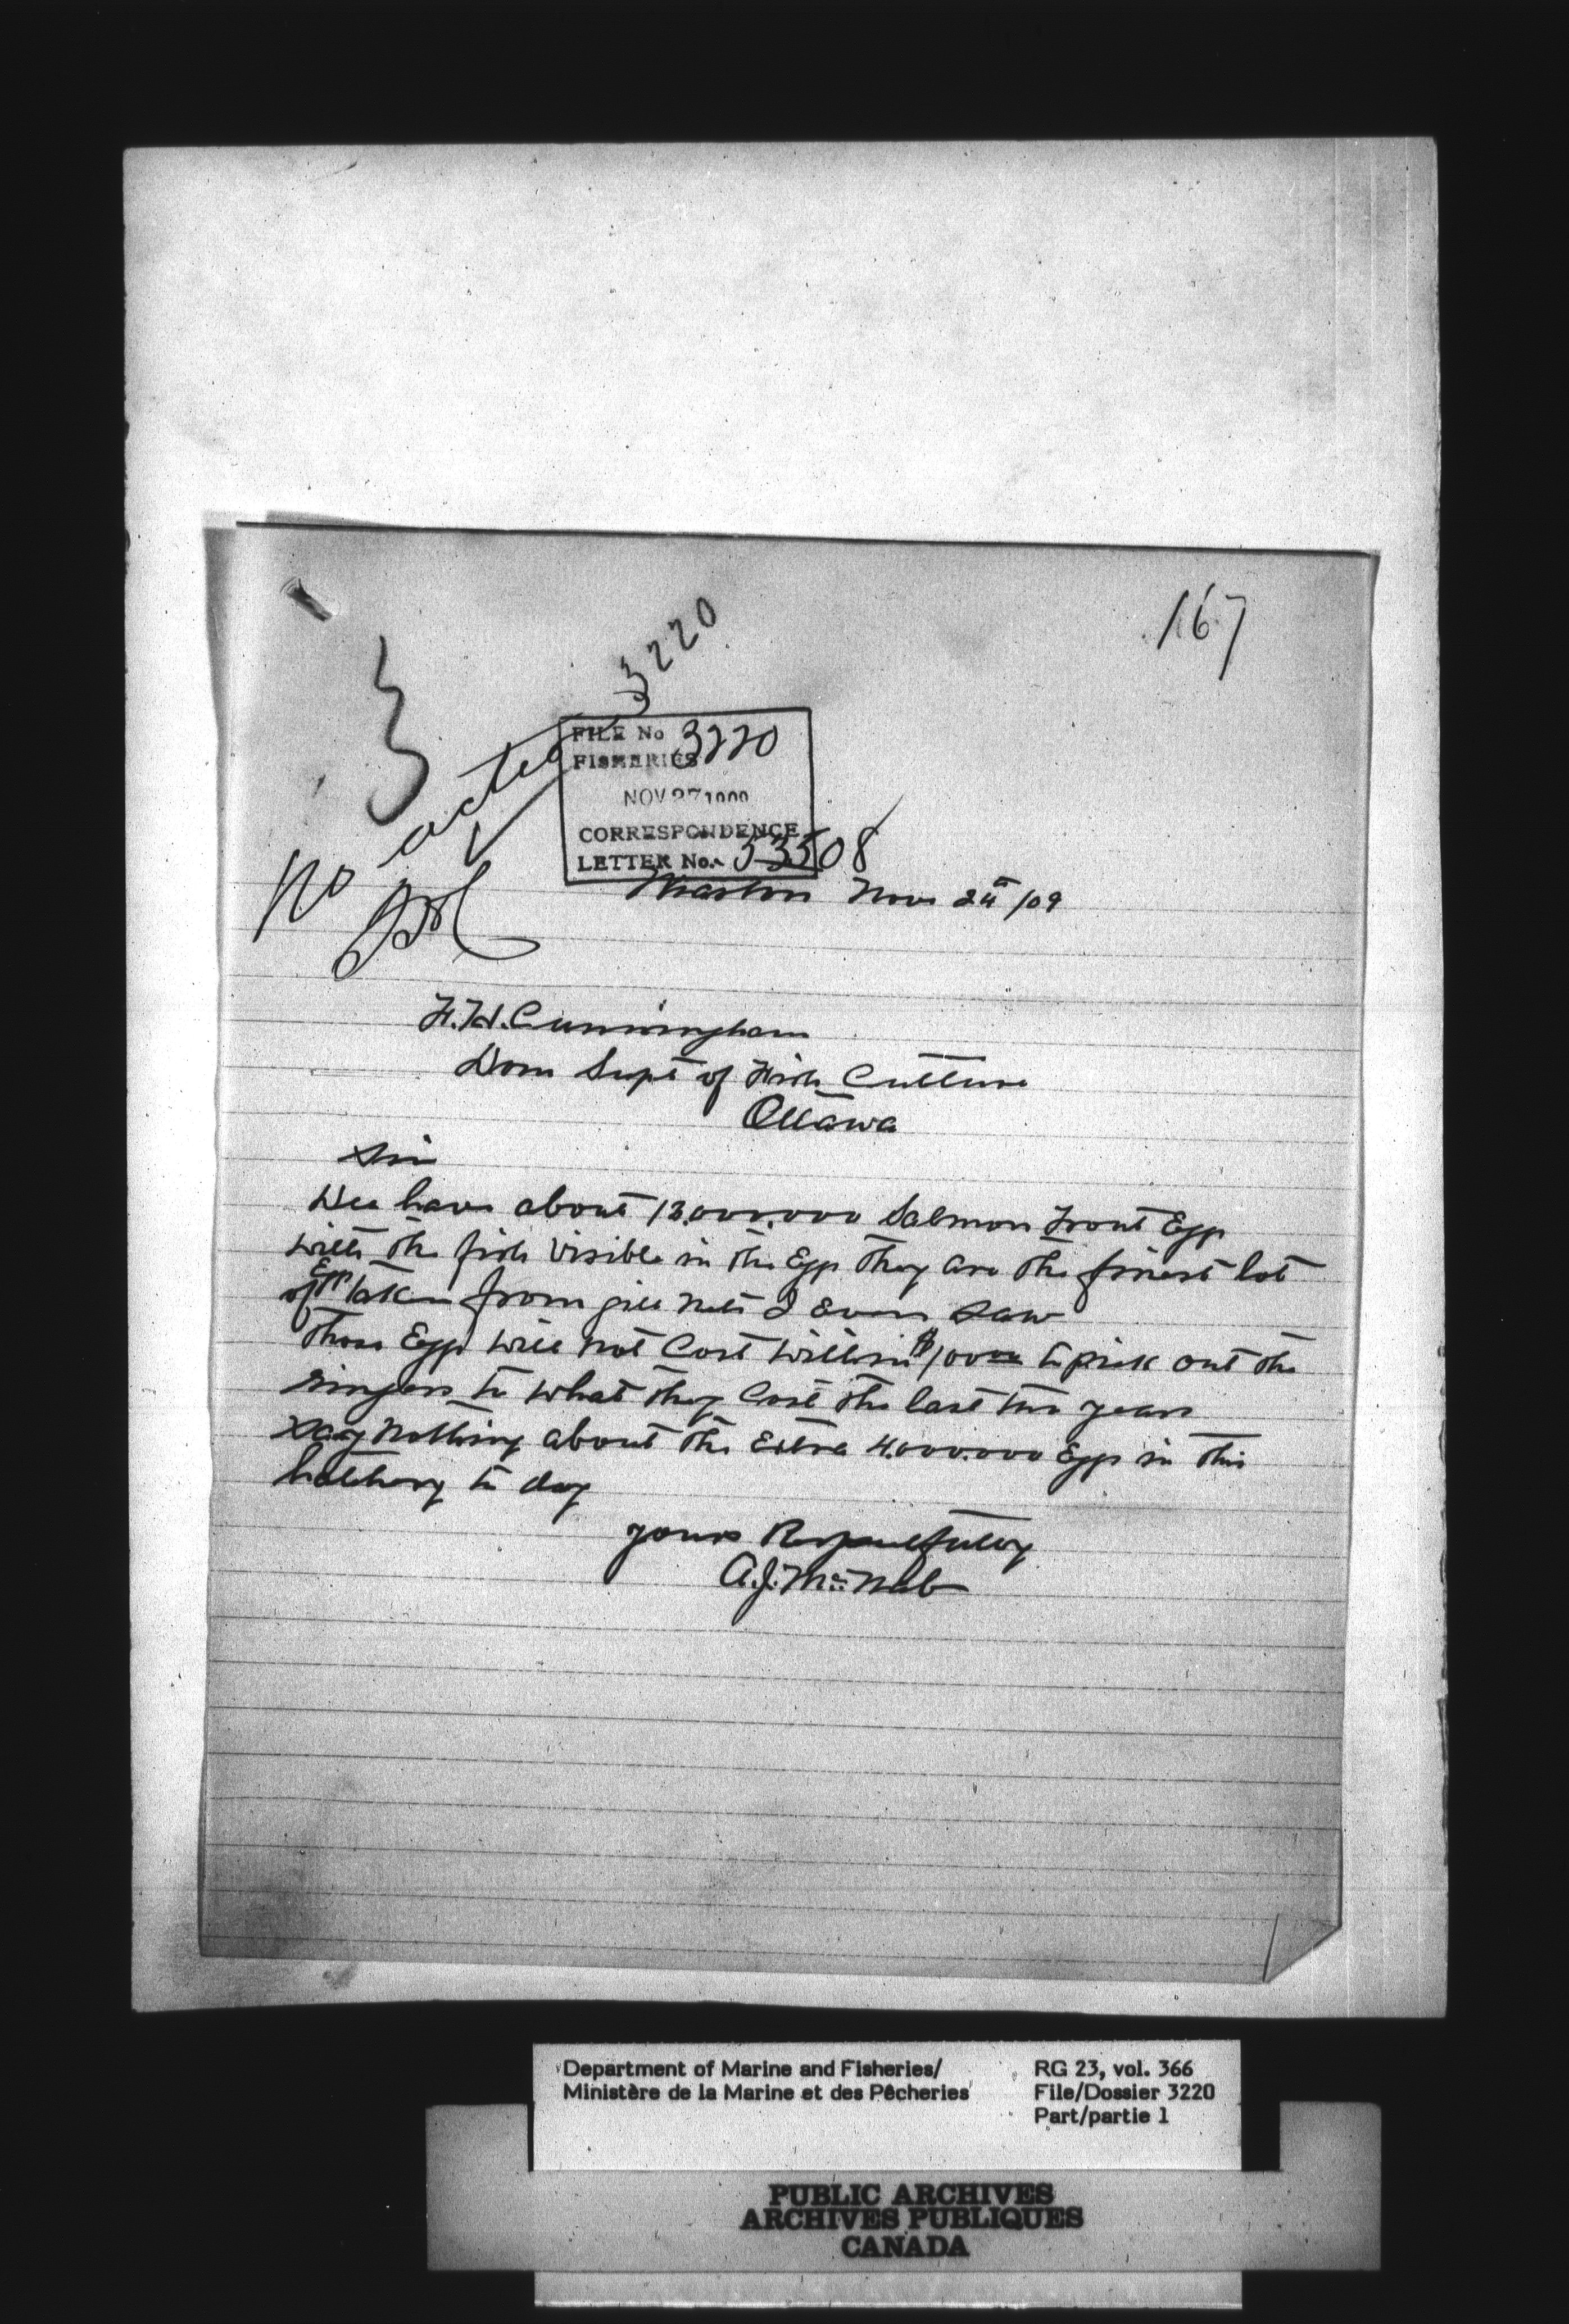 167
3220
No action
FILE No 3220
FISHERIES
NOV 27 1909
CORRESPONDENCE
LETTER No. 53508
Wiarton Nov 24th /09
F.H. Cunningham
Dom Supt of Fish Culture
Ottawa
Sir
Wee have about 13,000,000 Salmon Trout Eggs
with the fish visible in the Egg They are the finest lot
of Eggs taken from gill nets I Ever saw
These Eggs will not Cost within $100 to pick out the
ringers to what they Cost the last two years
say nothing about the Extra 4,000,000 Eggs in this
hatchery to day
yours Respectfully
A.J. McNab
Department of Marine and Fisheries/
Ministère de la Marine et des Pêcheries
RG 23, vol. 366
File/Dossier 3220
Part/partie 1
PUBLIC ARCHIVES
ARCHIVES PUBLIQUES
CANADA